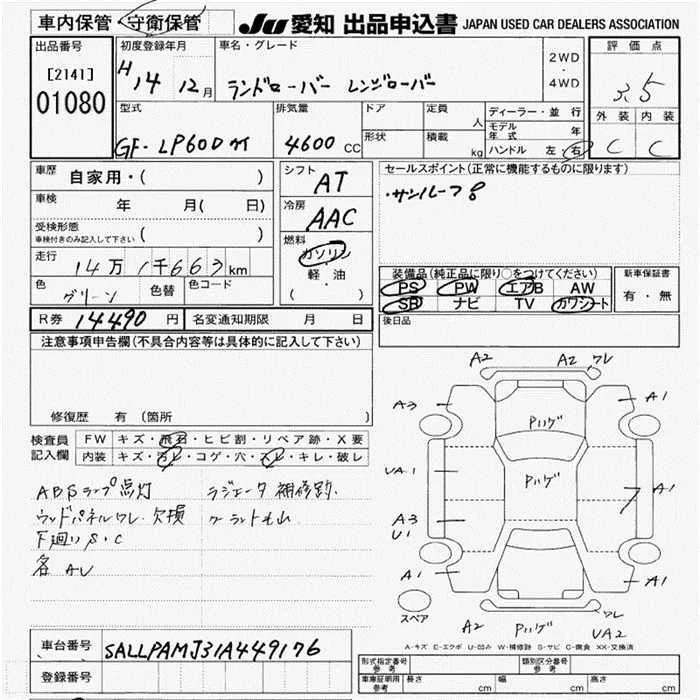 車内保管・守衛保管 JU愛知 出品申込書 JAPAN USED CAR DEALERS ASSOCIATION
出品番号 初度登録年月 車名・グレード 2WD・4WD 評価点
[2141] H14 12月 ランドローバー レンジローバー 3.5
01080
型式 排気量 ドア 定員 人 ディーラー・並行 外装 内装
GF-LP60D 4600cc 形状 積載 kg モデル年式 年 C C
ハンドル 左・右
車歴 自家用・( ) シフト AT セールスポイント(正常に機能するものに限ります)
車検 年 月( 日) 冷房 AAC ・サンルーフ
受検形態 ( )
車検付きのみ記入して下さい
燃料 ガソリン
軽・油
( )
走行 14万1千663km
色 グリーン 色替 色コード
装備品(純正品に限り○をつけてください) 新車保証書
PS PW エアB AW 有・無
SR ナビ TV カワシート
R券 14490円 名変通知期限 月 日 後日品
注意事項申告欄(不具合内容等は具体的に記入して下さい)
修復歴 有(箇所
検査員記入欄 FW キズ・飛石・ヒビ割・リペア跡・X要
内装 キズ・汚レ・コゲ・穴・スレ・キレ・破レ
ABSランプ点灯 ラジエータ補修跡.
ウッドパネルワレ・欠損
下廻りS・C
各AU
A2 A2 ワレ
A3 A1
Pハゲ
UA1 Pハゲ A1
A3
U1
A1 A1
スペア
A2 Pハゲ ワレ
UA2
A-キズ E-エクボ U-凹み W-補修跡 S-サビ C-腐食 XX-交換済
車台番号 SALLPAMJ31A449176
登録番号
型式指定番号 参考 類別区分番号 参考
車庫証明用 参考 長さ cm 幅 cm 高さ cm